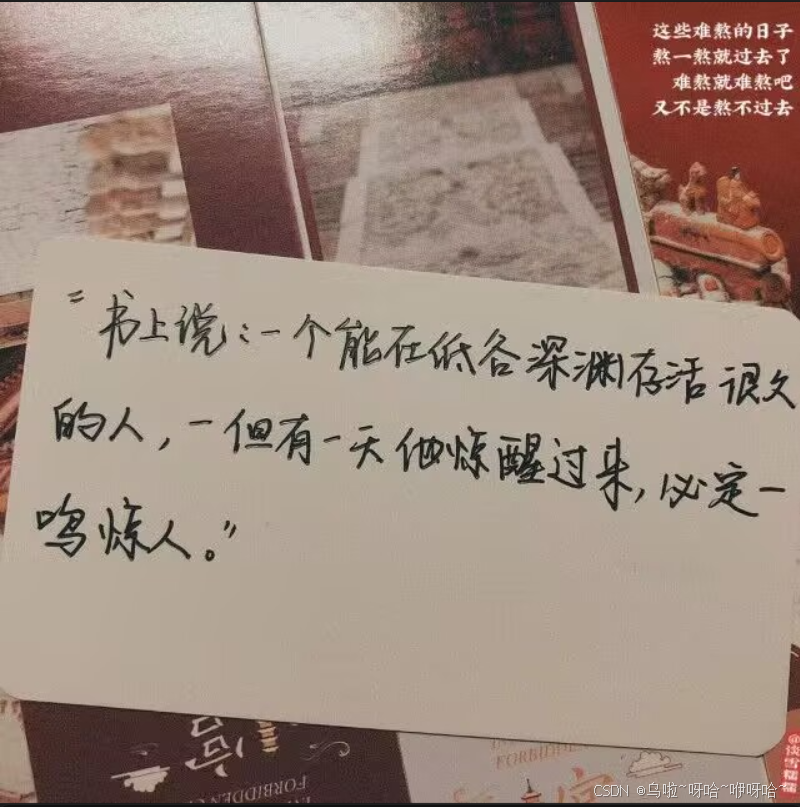 这些难熬的日子
熬一熬就过去了
难熬就难熬吧
又不是熬不过去
"书上说：一个能在低谷深渊存活很久
的人，一但有一天他惊醒过来，必定一
鸣惊人。"
FORBIDDEN
FORBIDDEN
@谈雪糯糯
CSDN @乌啦~呀哈~咿呀哈~